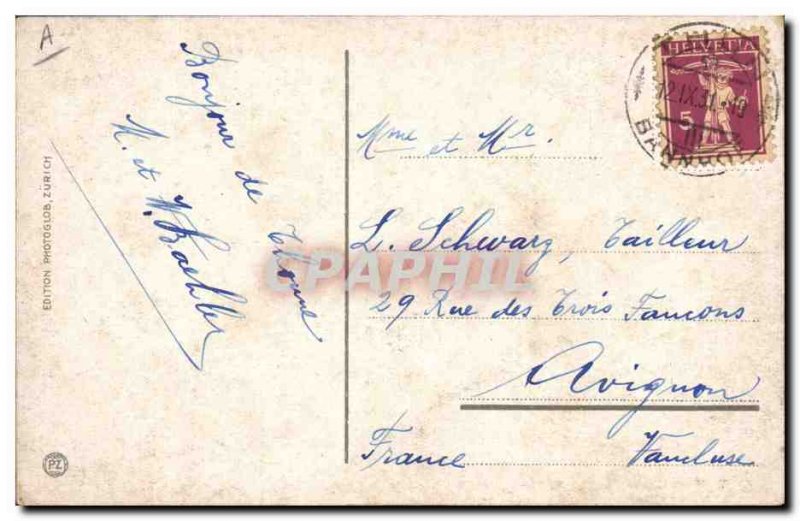 A
Bonjour de Thoune
M. et W. Baehler
EDITION PHOTOGLOB, ZÜRICH
PZ
HELVETIA
5
12.IX.31.
Mme et Mr.
L. Schwarz, Tailleur
29 Rue des Trois Faucons
Avignon
France Vaucluse
CPAPHIL